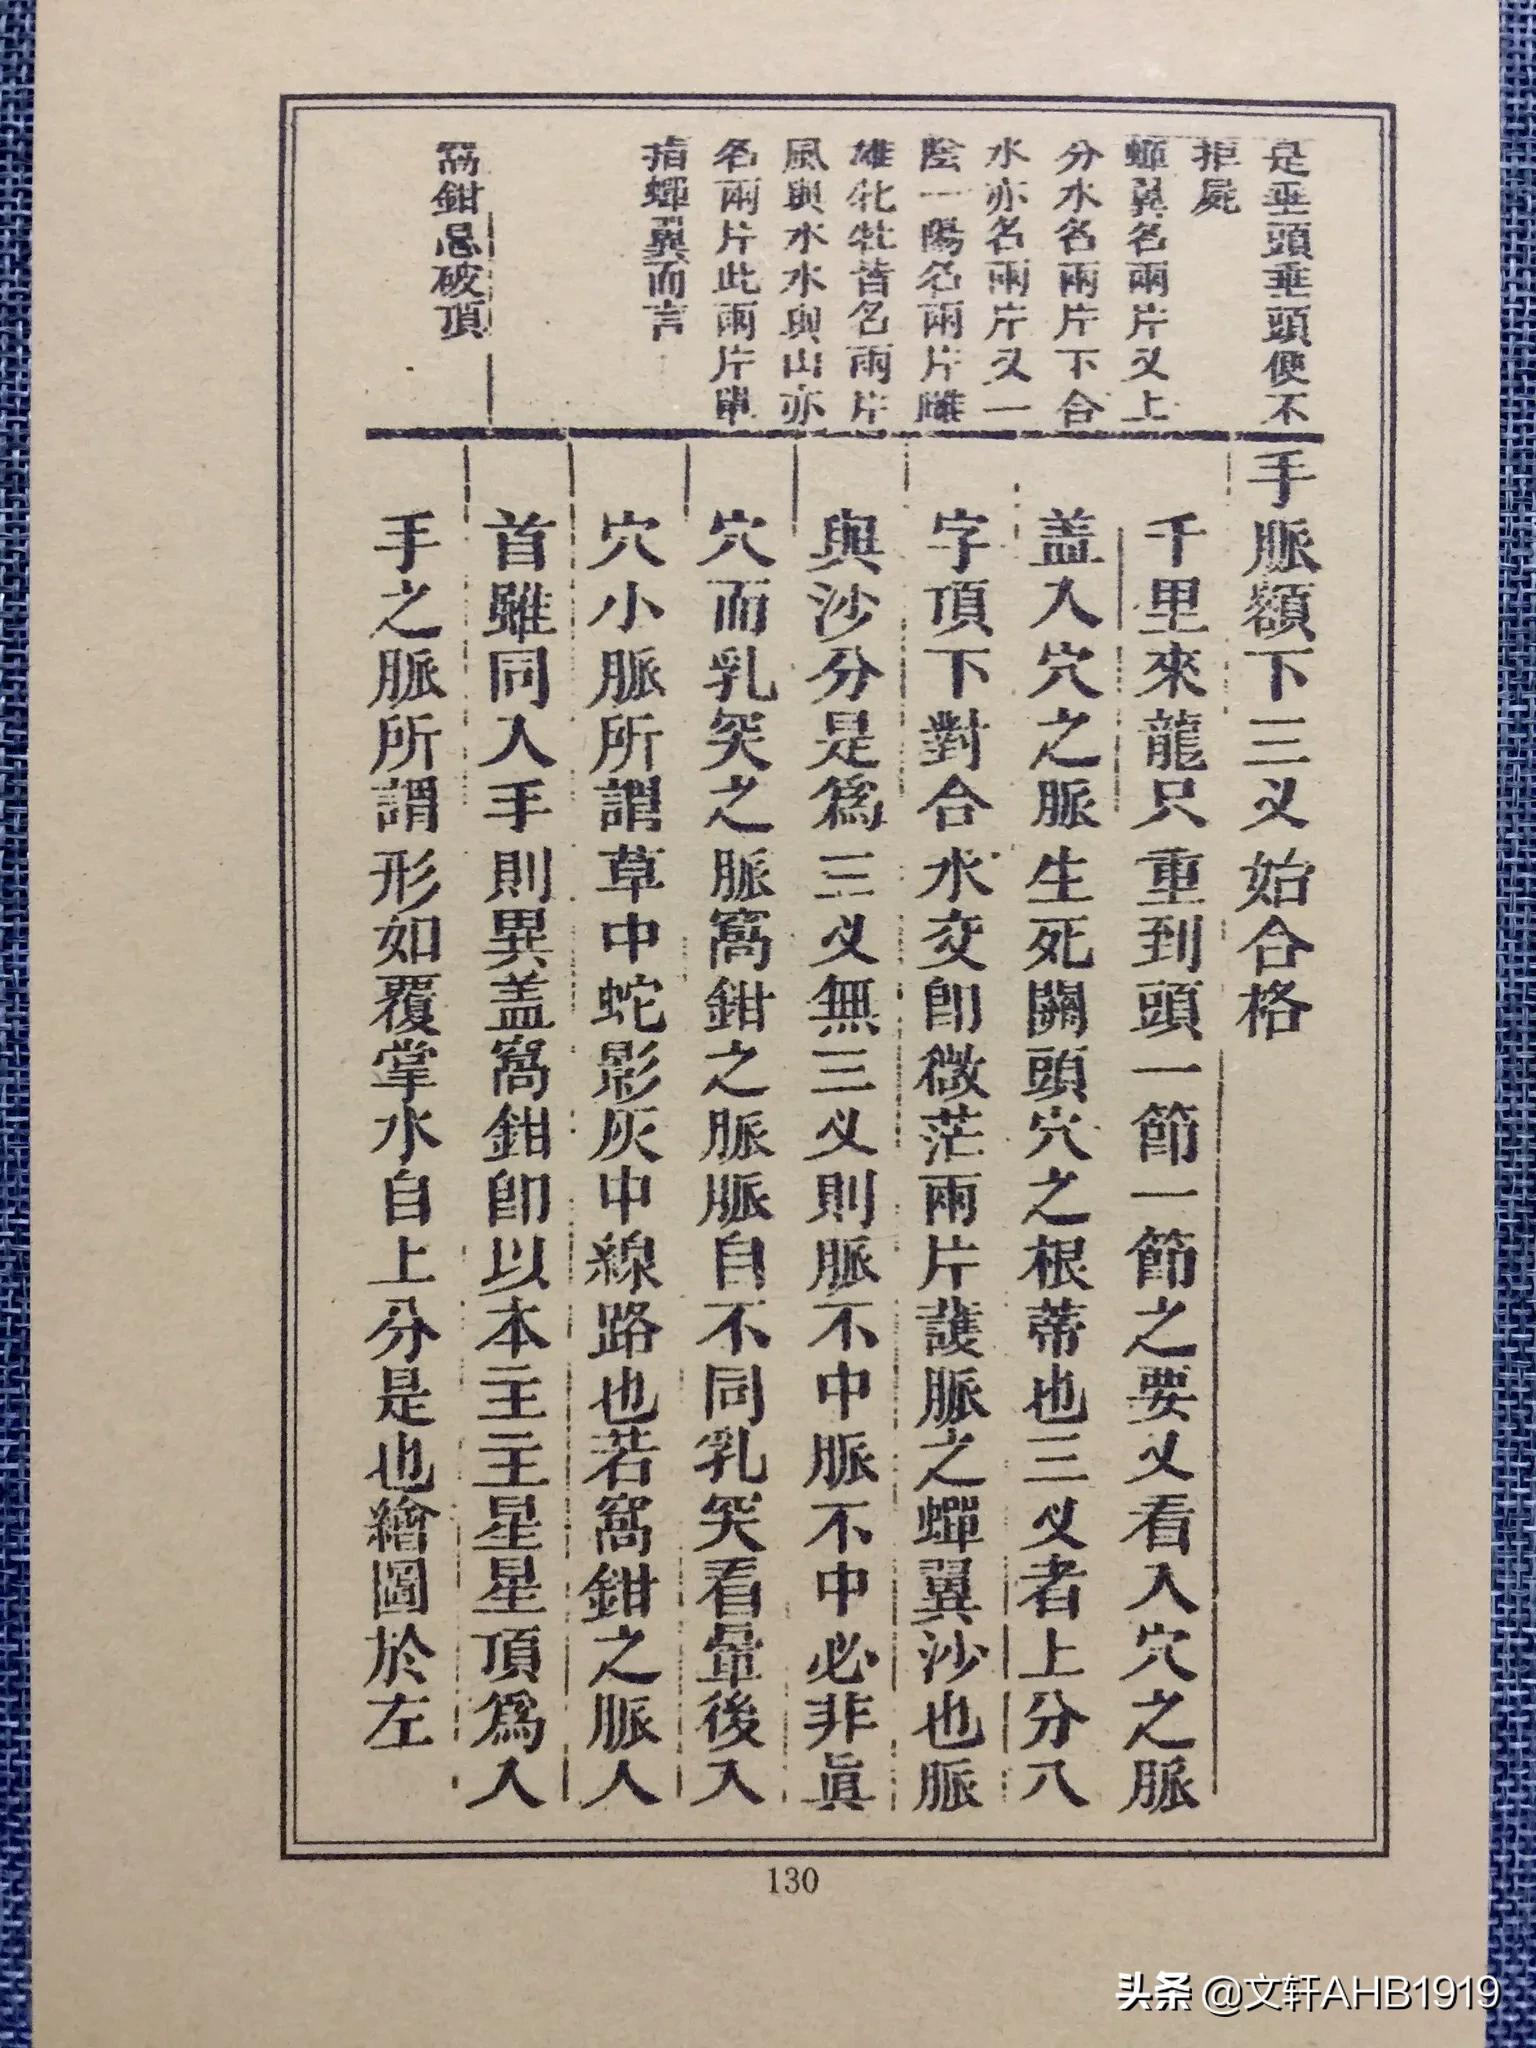 是垂頭垂頭便不
拒屍
蟬翼名兩片义上
分水名兩片下合
水亦名兩片又一
陰一陽名兩片雌
雄牝牡皆名兩片
風與水水與山亦
名兩片此兩片單
指蟬翼而言
窩鉗忌破頂
手脈額下三义始合格
千里來龍只重到頭一節一節之要义看入穴之脈
盖入穴之脈生死關頭穴之根蒂也三义者上分八
字頂下對合水交卽微茫兩片護脈之蟬翼沙也脈
與沙分是爲三义無三义則脈不中脈不中必非眞
穴而乳突之脈窩鉗之脈脈自不同乳突看暈後入
穴小脈所謂草中蛇影灰中線路也若窩鉗之脈人
首雖同入手則異盖窩鉗卽以本主主星星頂爲入
手之脈所謂形如覆掌水自上分是也繪圖於左
130
头条 @文轩AHB1919